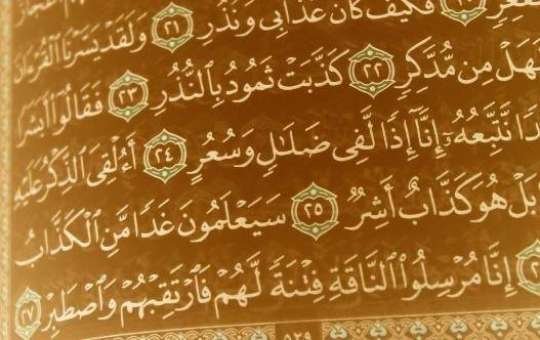 فَكَيْفَ كَانَ عَذَابِى وَنُذُرِ ٢١ وَلَقَدْ يَسَّرْنَا ٱلْقُرْءَانَ
فَهَلْ مِن مُّدَّكِرٍ ٢٢ كَذَّبَتْ ثَمُودُ بِٱلنُّذُرِ ٢٣ فَقَالُوٓا۟ أَبَشَرًا
نَّتَّبِعُهُۥٓ إِنَّآ إِذًا لَّفِى ضَلَٰلٍ وَسُعُرٍ ٢٤ أَءُلْقِىَ ٱلذِّكْرُ عَلَيْهِ
بَلْ هُوَ كَذَّابٌ أَشِرٌ ٢٥ سَيَعْلَمُونَ غَدًا مَّنِ ٱلْكَذَّابُ
إِنَّا مُرْسِلُوا۟ ٱلنَّاقَةِ فِتْنَةً لَّهُمْ فَٱرْتَقِبْهُمْ وَٱصْطَبِرْ ٢٧
٥٢٩